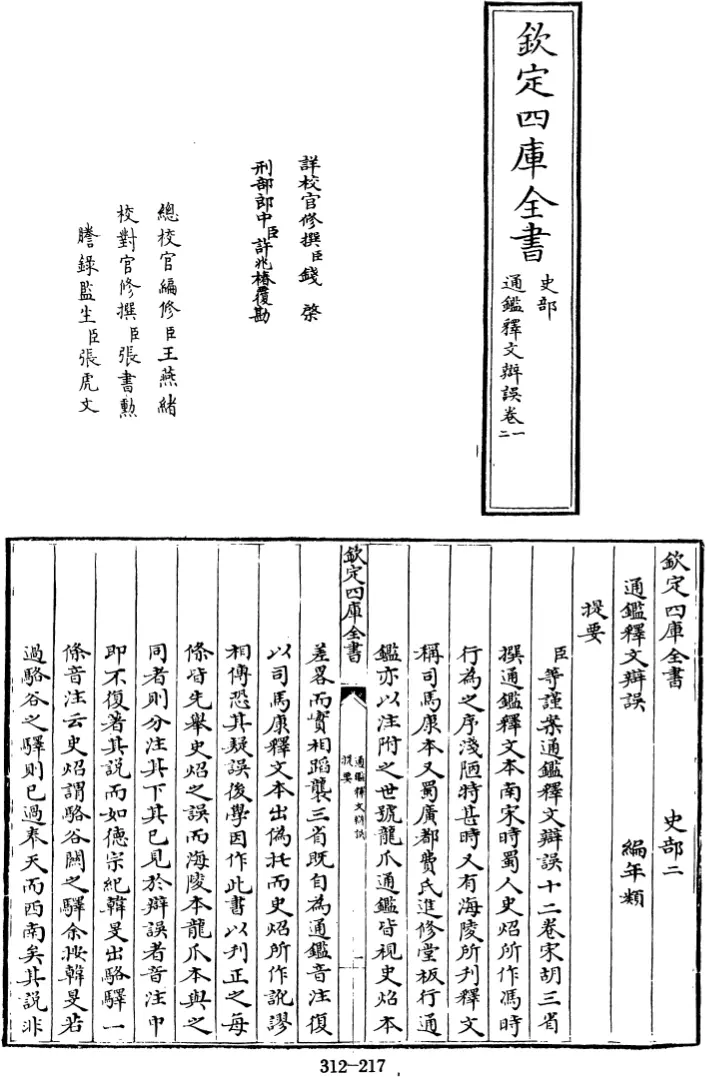 欽定四庫全書
史部
通鑑釋文辯誤卷一
二
詳校官修撰臣錢棨
刑部郎中臣許兆椿覆勘
總校官編修臣王燕緒
校對官修撰臣張書勲
謄錄監生臣張虎文
欽定四庫全書 史部二
通鑑釋文辯誤 編年類
提要
臣等謹案通鑑釋文辯誤十二卷宋胡三省
撰通鑑釋文本南宋時蜀人史炤所作馮時
行為之序淺陋特甚時又有海陵所刋釋文
稱司馬康本又蜀廣都費氏進修堂板行通
鑑亦以注附之世號龍爪通鑑皆視史炤本
欽定四庫全書
通鑑釋文辯誤
提要
一
差畧而實相蹈襲三省既自為通鑑音注復
以司馬康釋文本出偽托而史炤所作訛謬
相傳恐其疑誤後學因作此書以刋正之每
條皆先舉史炤之誤而海陵本龍爪本與之
同者則分注其下其已見於辯誤者音注中
即不復著其說而如德宗紀韓旻出駱驛一
條音注云史炤謂駱谷關之驛余按韓旻若
過駱谷之驛則已過奉天而西南矣其說非
312-217